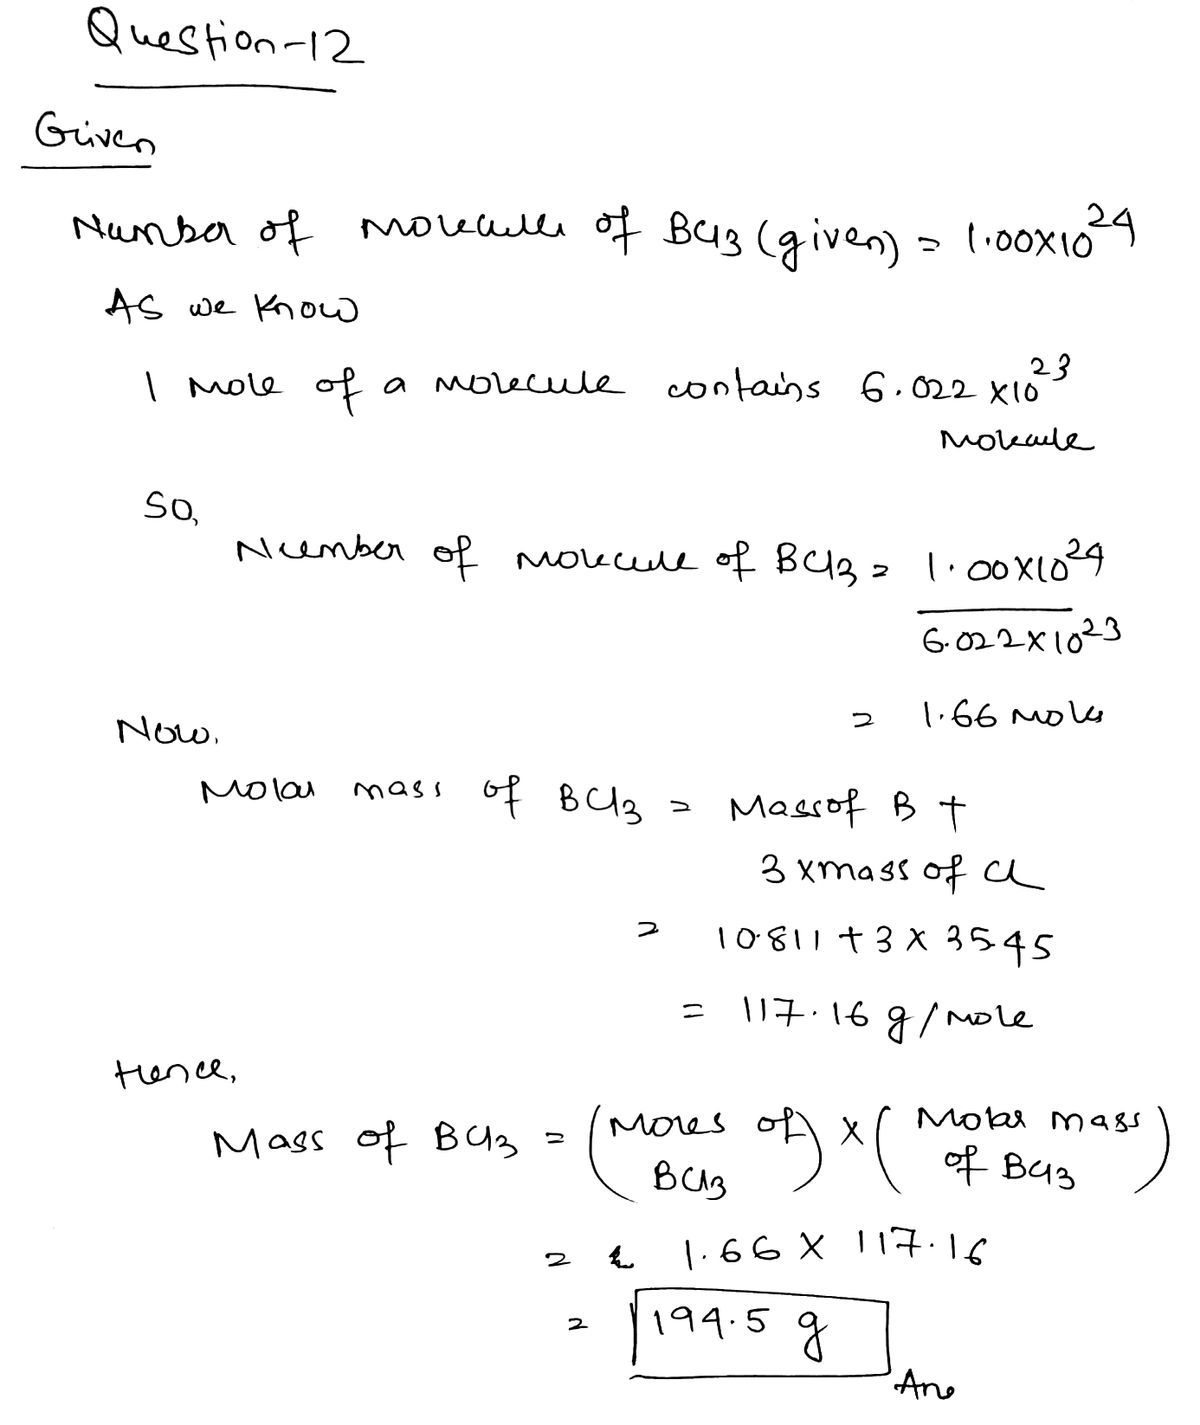 Question-12
Given
Number of molecules of BCl3 (given) = 1.00×10^24
As we know
1 mole of a molecule contains 6.022 ×10^23
molecule
So,
Number of molecule of BCl3 = 1.00×10^24
6.022×10^23
= 1.66 moles
Now,
Molar mass of BCl3 = Mass of B +
3 × mass of Cl
= 10.811 + 3 × 35.45
= 117.16 g/mole
Hence,
Mass of BCl3 = (Moles of BCl3) × (Molar mass of BCl3)
= 1.66 × 117.16
= 194.5 g
Ans